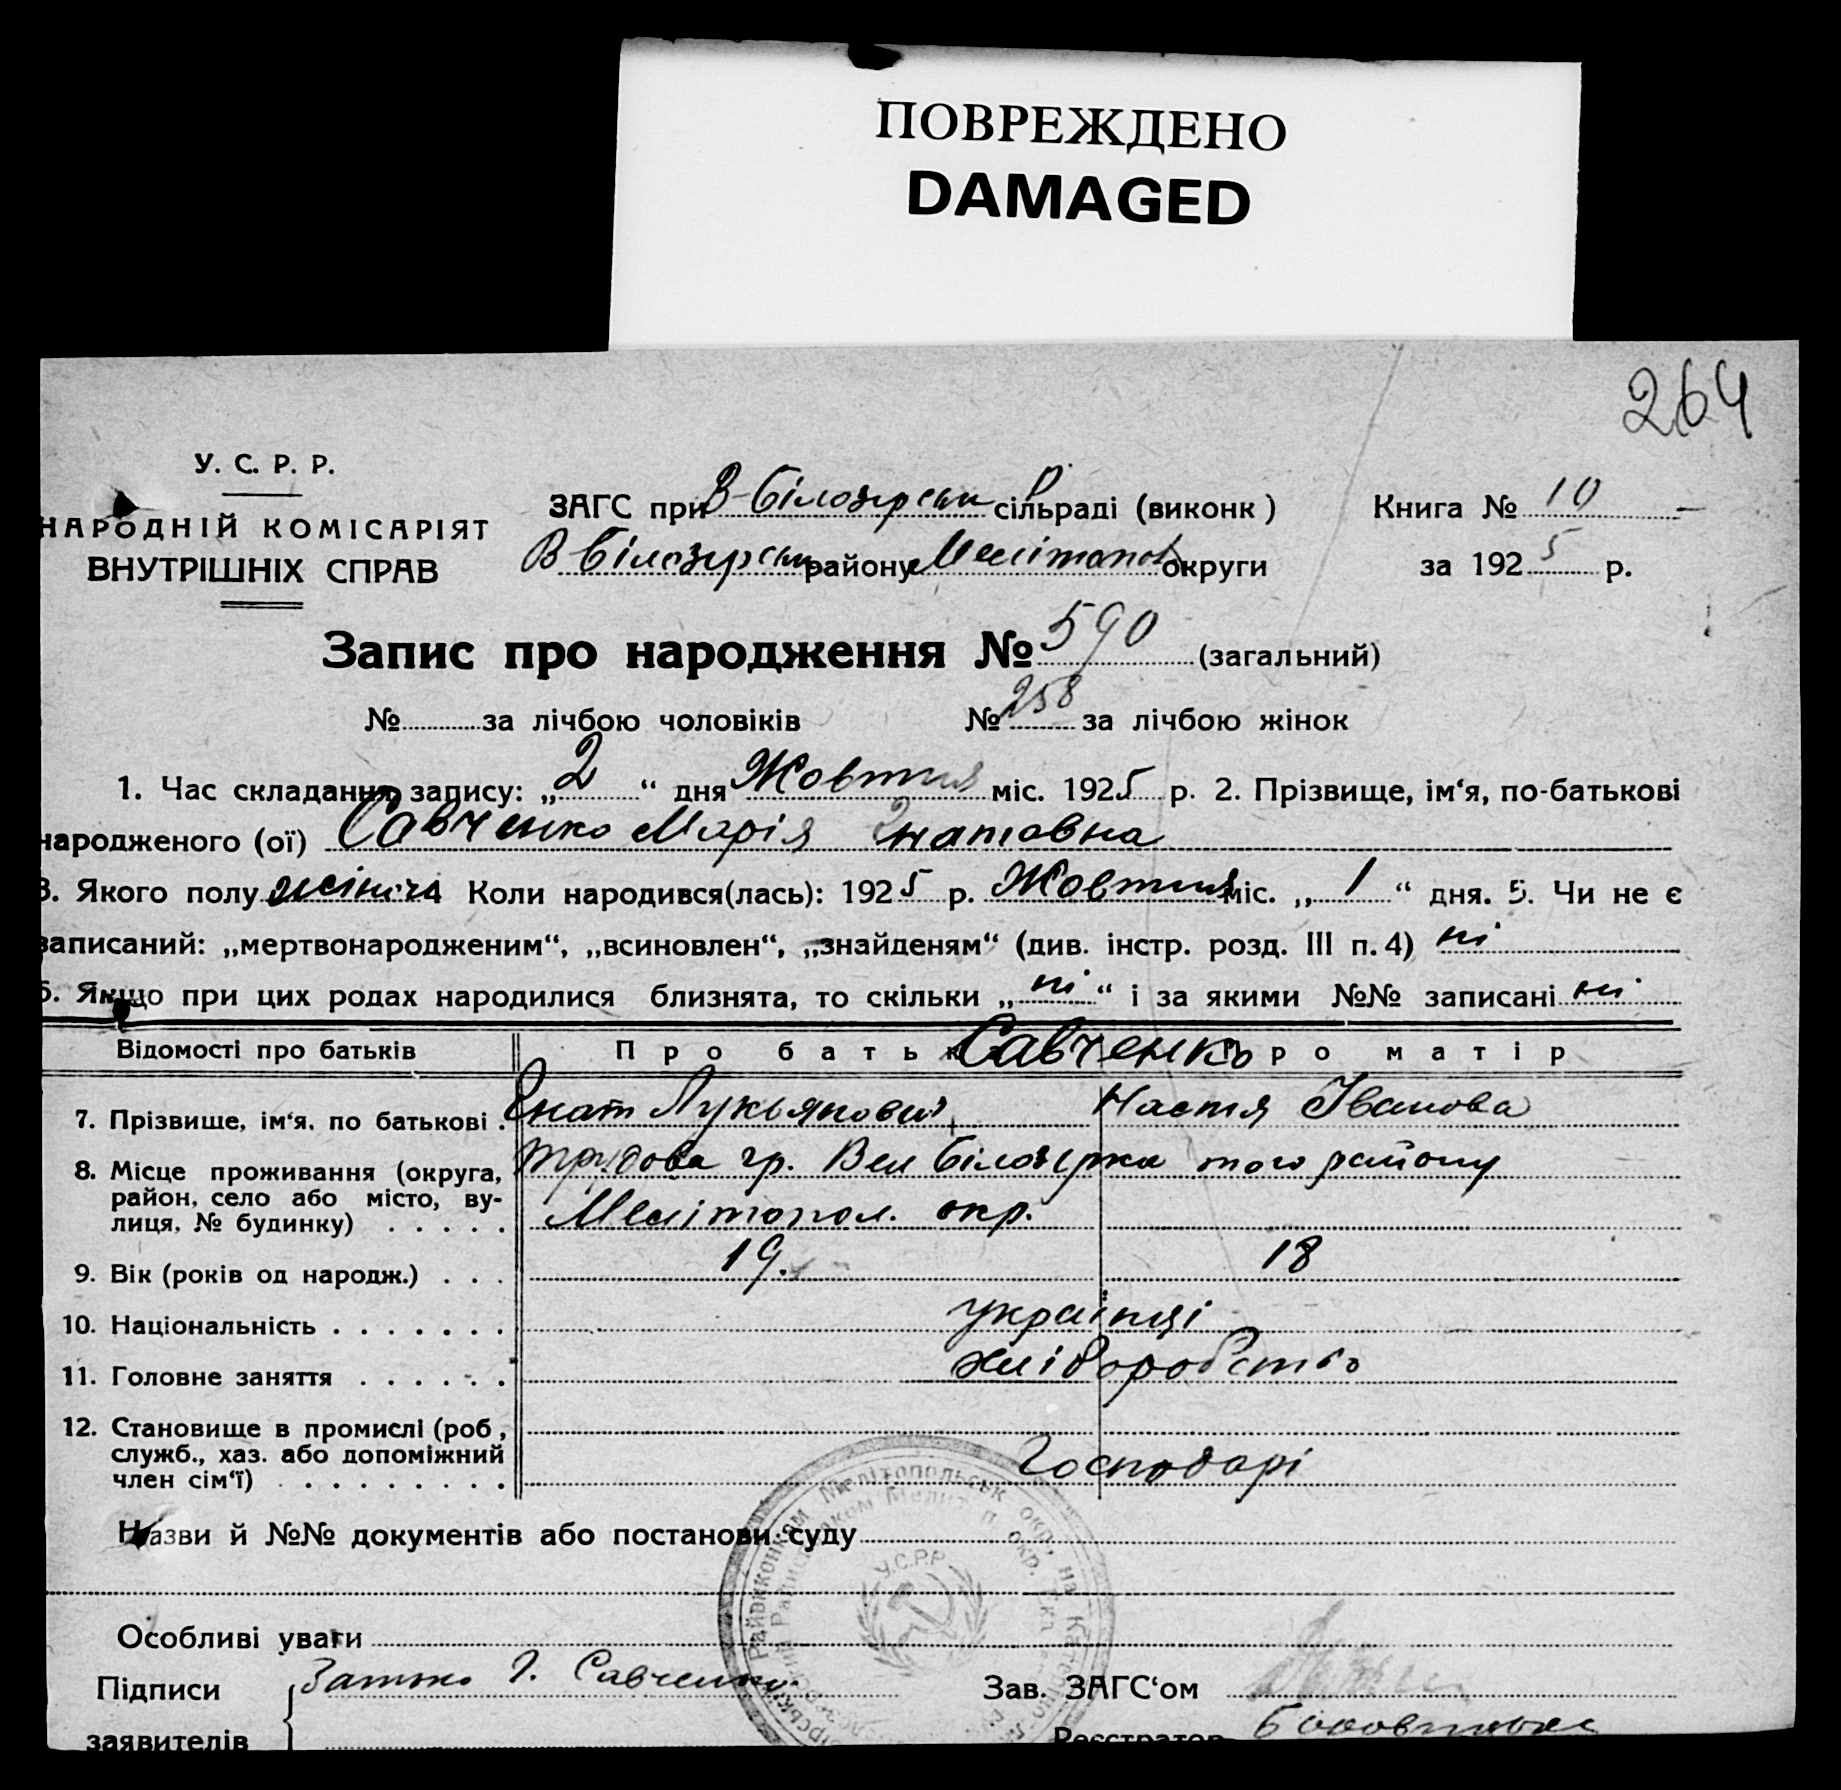 ПОВРЕЖДЕНО
DAMAGED
264
У. С. Р. Р.
НАРОДНІЙ КОМІСАРІЯТ
ВНУТРІШНІХ СПРАВ
ЗАГС при В-Білозірськ сільраді (виконк )
В Білозірськ району Мелітопол округи
Книга № 10
за 1925 р.
Запис про народження № 590 (загальний)
№ за лічбою чоловіків № 258 за лічбою жінок
1. Час складання запису: „2“ дня Жовтня міс. 1925 р. 2. Прізвище, ім‘я, по-батькові
народженого (ої) Савченко Марія Гнатовна
3. Якого полу жіноч 4 Коли народився(лась): 1925 р. Жовтня міс. „1“ дня. 5. Чи не є
записаний: „мертвонародженим“, „всиновлен“, „знайденям“ (див. інстр. розд. III п. 4) ні
6. Якщо при цих родах народилися близнята, то скільки „ні“ і за якими №№ записані ні
Відомості про батьків Про батька Савченко Про матір
7. Прізвище, ім‘я, по батькові . Гнат Лукьянович Настя Іванова
8. Місце проживання (округа, район, село або місто, вулиця, № будинку) . . . . .
Трудова гр. Вел Білозірка того району
Мелітопол. окр.
9. Вік (років од народж.) . . . 19. 18
10. Національність . . . . . . . українці
11. Головне заняття . . . . . . хліборобство
12. Становище в промислі (роб , служб., хаз. або допоміжний член сім‘ї) . . . . . . . . .
Господарі
Назви й №№ документів або постанови суду
У.С.Р.Р.
Особливі уваги
Підписи заявителів
Батько Г. Савченко
Зав. ЗАГС‘ом
Реєстратор